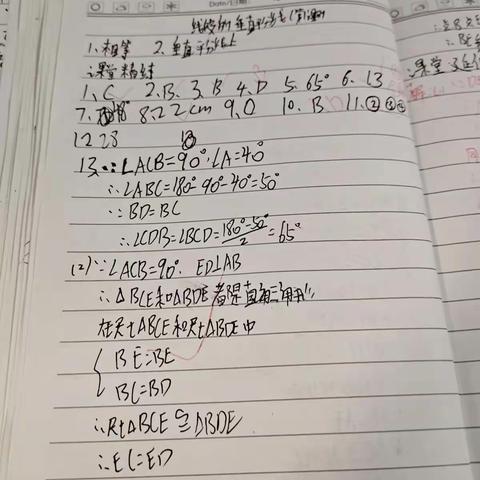 线段的垂直平分线(第1课时)
1.相等 2.垂直平分线上
课堂精练
1、C 2.B. 3.B 4.D 5.65° 6.13
7. 8.22cm 9.D 10.B 11.②③④
12 28
13.∵∠ACB=90°,∠A=40°
∴∠ABC=180°-90°-40°=50°
∵BD=BC
∴∠CDB=∠BCD=180°-50°/2=65°
(2)∵∠ACB=90°. ED⊥AB
∴△BCE和△BDE都是直角三角形
在Rt△BCE和Rt△BDE中
BE=BE
BC=BD
∴Rt△BCE≌△BDE
∴EC=ED
课堂